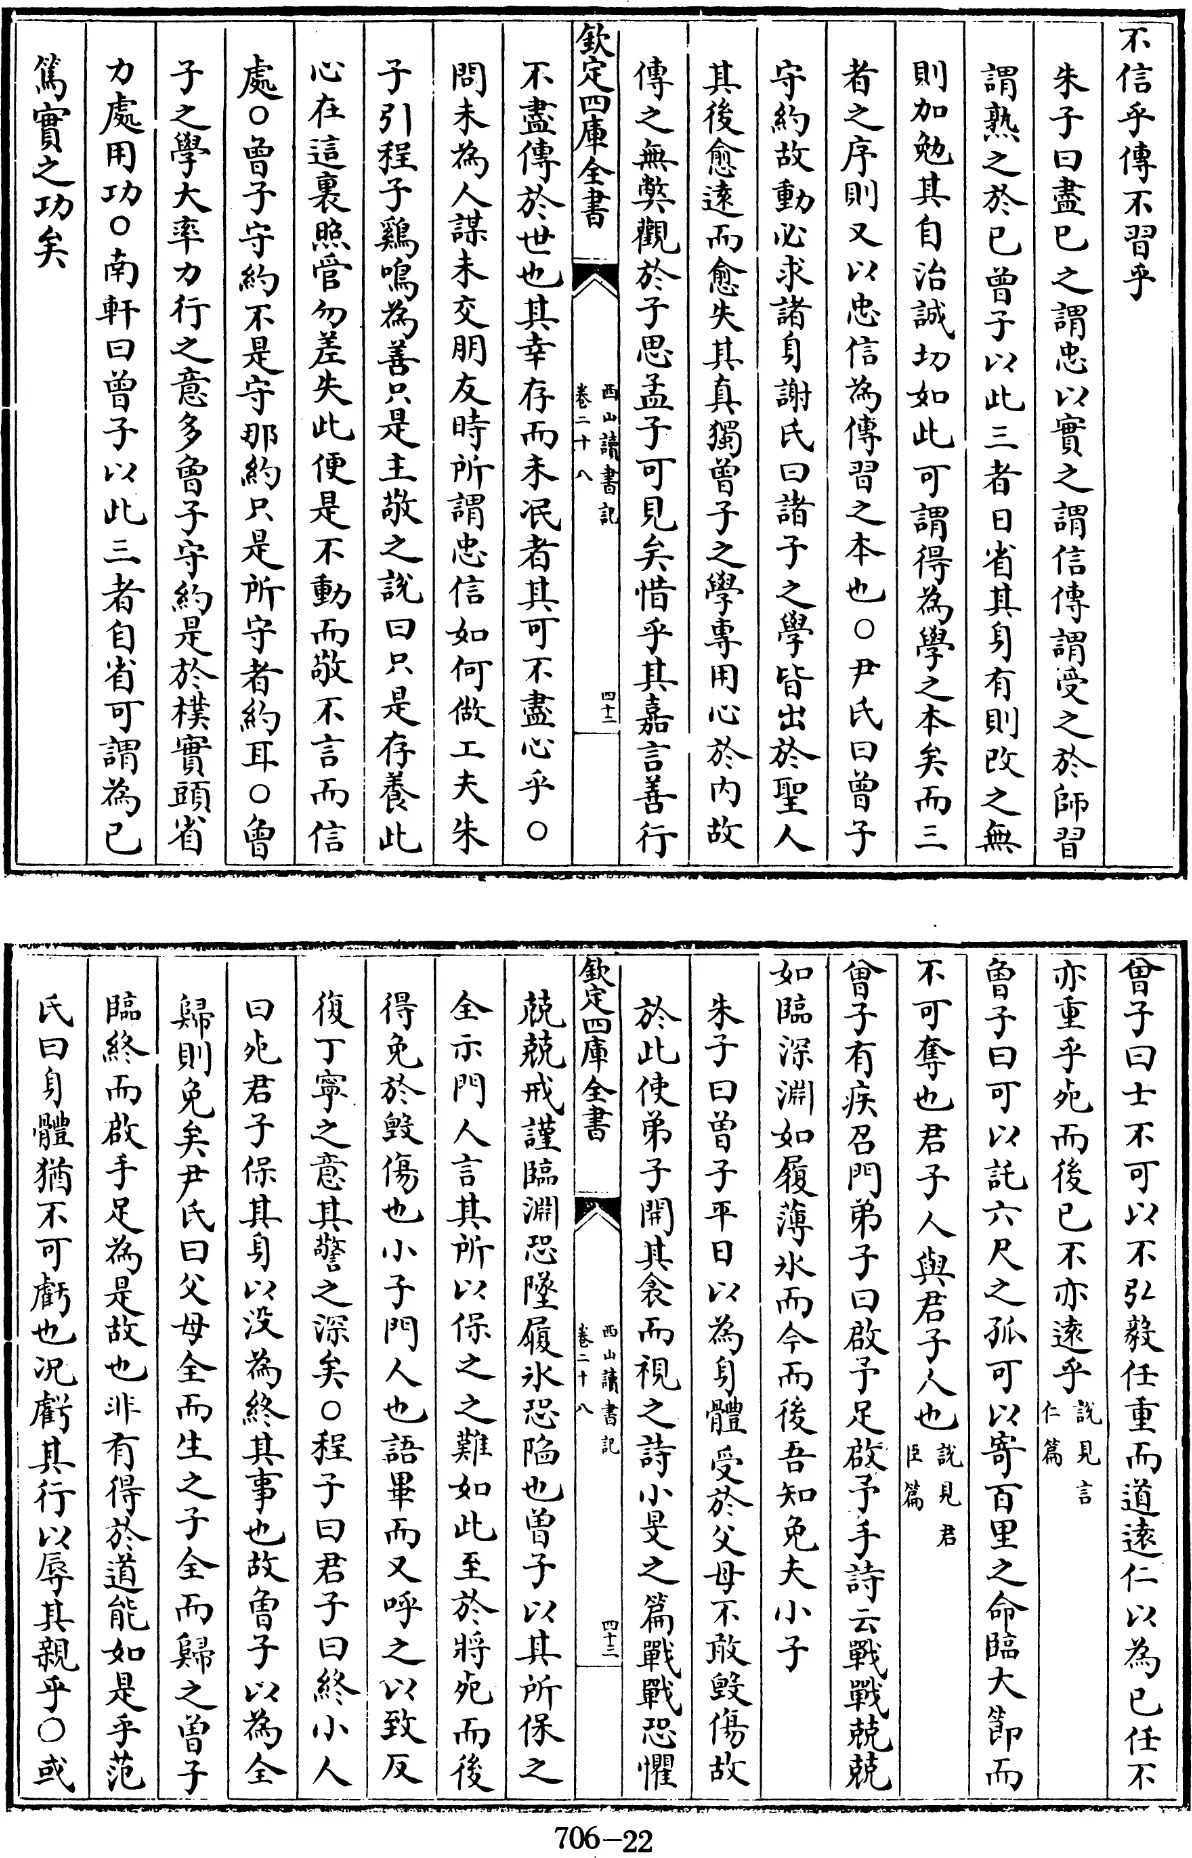 不信乎傳不習乎
朱子曰盡已之謂忠以實之謂信傳謂受之於師習
謂熟之於已曾子以此三者日省其身有則改之無
則加勉其自治誠切如此可謂得為學之本矣而三
者之序則又以忠信為傳習之本也○尹氏曰曾子
守約故動必求諸身謝氏曰諸子之學皆出於聖人
其後愈遠而愈失其真獨曾子之學專用心於内故
傳之無弊觀於子思孟子可見矣惜乎其嘉言善行
欽定四庫全書
西山讀書記
卷二十八
四十二
不盡傳於世也其幸存而未泯者其可不盡心乎○
問未為人謀未交朋友時所謂忠信如何做工夫朱
子引程子鷄鳴為善只是主敬之説曰只是存養此
心在這裏照管勿差失此便是不動而敬不言而信
處○曾子守約不是守那約只是所守者約耳○曾
子之學大率力行之意多曾子守約是於樸實頭省
力處用功○南軒曰曾子以此三者自省可謂為已
篤實之功矣
曾子曰士不可以不弘毅任重而道遠仁以為已任不
亦重乎死而後已不亦遠乎說見言仁篇
曾子曰可以託六尺之孤可以寄百里之命臨大節而
不可奪也君子人與君子人也說見君臣篇
曾子有疾召門弟子曰啟予足啟予手詩云戰戰兢兢
如臨深淵如履薄氷而今而後吾知免夫小子
朱子曰曾子平日以為身體受於父母不敢毀傷故
於此使弟子開其衾而視之詩小旻之篇戰戰恐懼
欽定四庫全書
西山讀書記
卷二十八
四十三
兢兢戒謹臨淵恐墜履氷恐陷也曾子以其所保之
全示門人言其所以保之之難如此至於將死而後
得免於毀傷也小子門人也語畢而又呼之以致反
復丁寧之意其警之深矣○程子曰君子曰終小人
曰死君子保其身以没為終其事也故曾子以為全
歸則免矣尹氏曰父母全而生之子全而歸之曾子
臨終而啟手足為是故也非有得於道能如是乎范
氏曰身體猶不可虧也况虧其行以辱其親乎○或
706-22